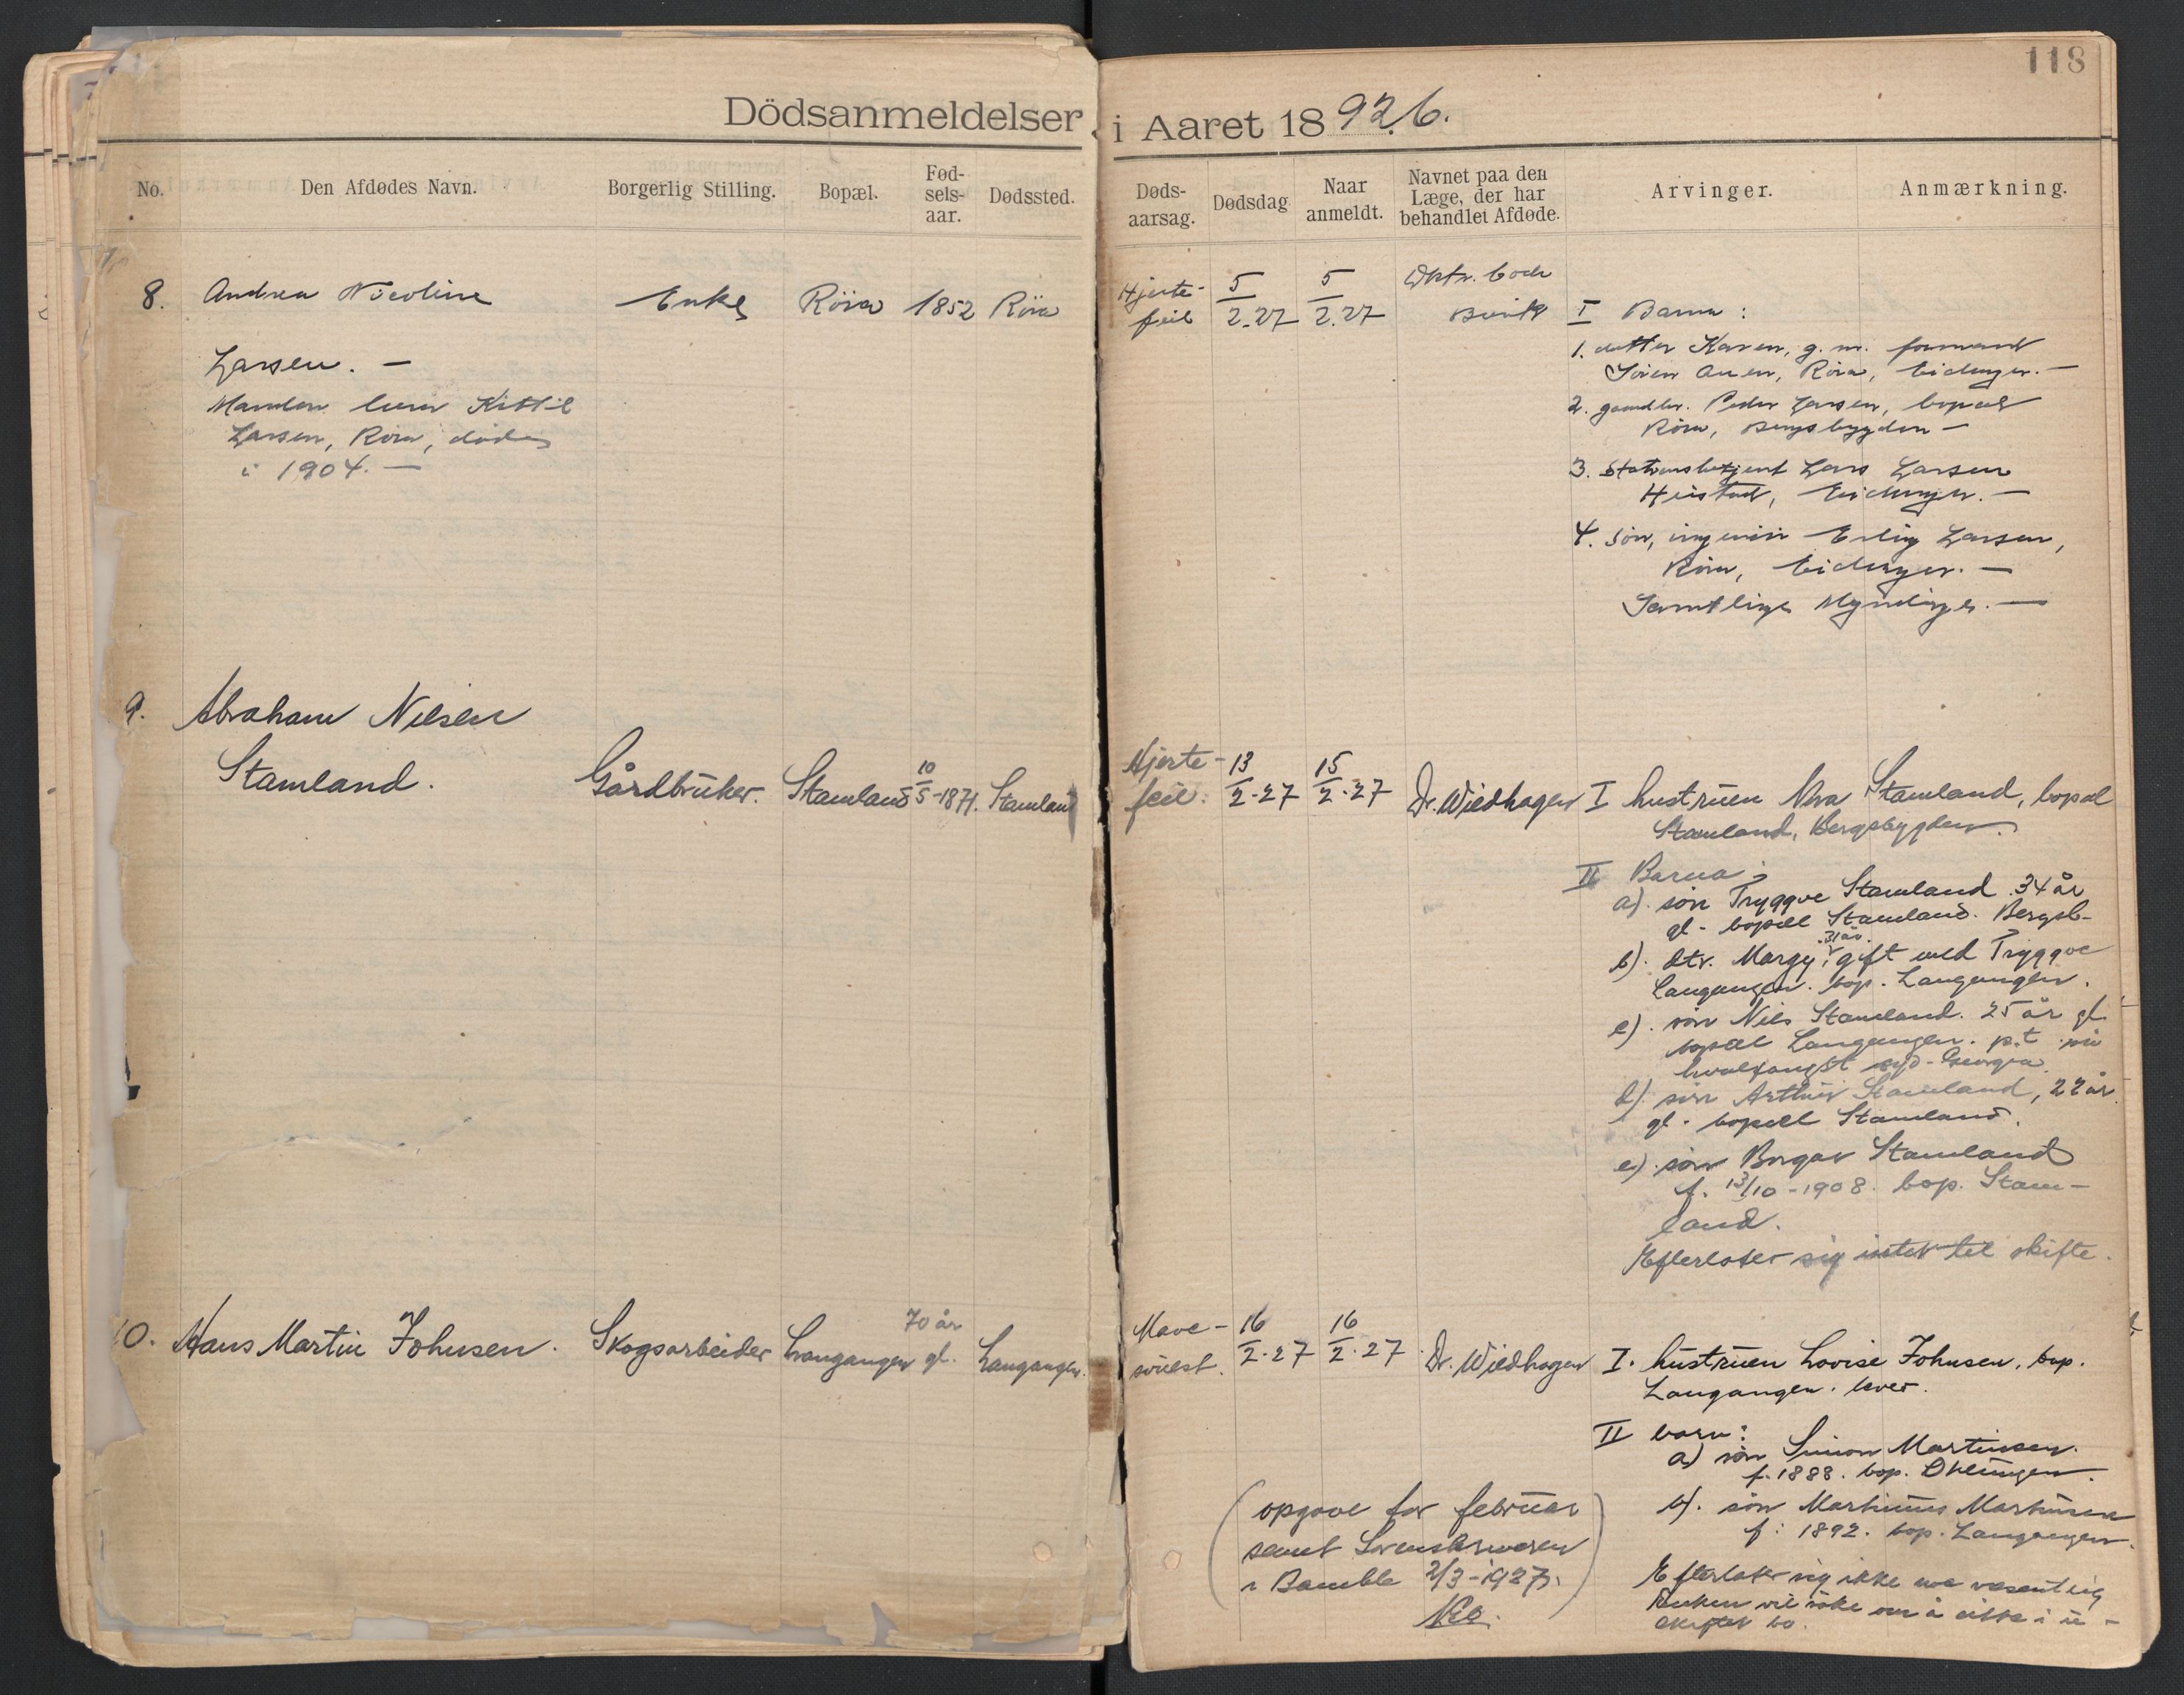 118
Dödsanmeldelser i Aaret 18926.
No. Den Afdødes Navn. Borgerlig Stilling. Bopæl. Fød-sels-aar. Dødssted. Døds-aarsag. Dødsdag Naar anmeldt. Navnet paa den Læge, der har behandlet Afdøde. Arvinger. Anmærkning.
8. Andrea Nicoline Enke Röra 1852 Röra Hjerte- 5/2-27 5/2.27
Larsen. —
Manden Kittil
Larsen, Röra, döde
i 1904. —
feil
I Barn:
1. datter Karen, g. m. formand
Sören Aasen, Röra, Eidanger. —
2. gaardbr. Peder Larsen, bopæl
Röra, Bergsbygden —
3. Stationsbetjent Lars Larsen
Heistad, Eidanger. —
4. sön, ingeniör Erling Larsen,
Röra, Eidanger. —
Samtlige Myndige. —
9. Abraham Nilsen
Stamland. Gårdbruker. Stamland 10/5-1871. Stamland
Hjerte-
feil. 13/2-27 15/2-27 Dr. Wiedhagen I hustruen Stamland, bopæl
Stamland, Bergsbygden.
II Barna:
a). sön Tryggve Stamland 34 år
gl. bopæll Stamland. Bergsb-
b). dtr. Margy, 31 år, gift med Tryggve
Langangen. bop. Langangen.
c). sön Nils Stamland. 25 år gl.
bopæl Langangen. p.t. på
hvalfangst syd-Georgia.
d). sön Arthur Stamland, 22 år
gl. bopæll Stamland.
e). sön Birger Stamland
f. 13/10-1908. bop. Stam-
land.
Efterlater sig intet til skifte.
10. Hans Martin Johnsen. Skogsarbeider Langangen 70 år gl. Langangen.
Mave-
16/2-27 16/2-27 Dr. Wiedhagen I. hustruen Lovise Johnsen, bop.
Langangen. lever.
II barn:
a) sön Simon Martinsen.
f. 1888. bop.
b). sön Martinius Martinsen
f. 1892. bop. Langangen.
Efterlater sig ikke noe vesentlig
Enken vil söke om å sitte i u-
skiftet bo.
(opgave for februar
sendt Sorenskriveren
i Bamble 2/3-1927.)